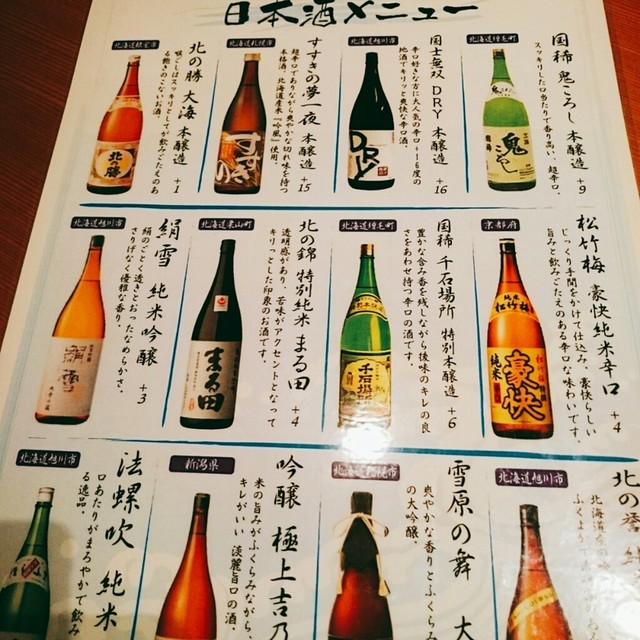 日本酒メニュー
北海道増毛町
国稀 鬼ころし 本醸造 +9
スッキリした口当たりで香り高い、超辛口。
鬼ころし
北海道旭川市
国士無双 DRY 本醸造 +16
辛口好きな方に大人気の辛口+16度の
地酒でキリッと爽快な辛口酒。
DRY
北海道札幌市
すすきの夢一夜 本醸造 +15
超辛口でありながら爽やかな切れ味を持つ
本格酒。北海道産米「吟風」使用。
すすきの
北海道根室市
北の勝 大海 本醸造 +1
喉ごしはスッキリとしてか飲みごたえのあ
る飽きのこないお酒。
北の勝
京都府
松竹梅 豪快純米辛口 +4
じっくり手間をかけて仕込み、豪快らしい
旨みと飲みごたえのある辛口な味わいです。
松竹梅
豪快
純米
北海道増毛町
国稀 千石場所 特別本醸造 +6
豊かな含み香を残しながら後味のキレの良
さをあわせ持つ辛口の酒です。
千石場所
北海道栗山町
北の錦 特別純米 まる田 +4
透明感があり、苦味がアクセントとなって
キリっとした印象のお酒です。
まる田
北海道旭川市
絹雪 純米吟醸 +3
絹のごとく透きとおったなめらかさ、
さりげなく優雅な香り。
絹雪
北海道旭川市
北の誉 純
北海道産の
ふくよかで
雪原の舞 大
爽やかな香りとふくら
の大吟醸。
新潟県
吟醸 極上吉乃
米の旨みがふくらみながら、
キレがいい 淡麗旨口の酒。
北海道旭川市
法螺吹 純米
口あたりがまろやかで飲み
る逸品。